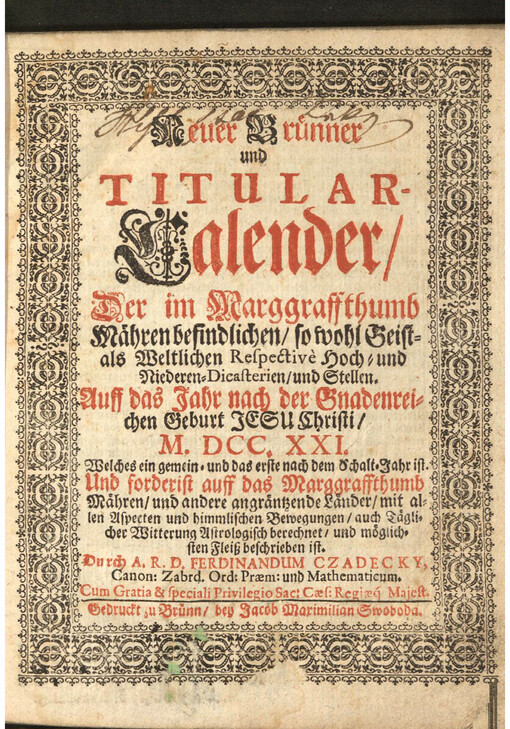 Neuer Brünner
und
TITULAR-
Calender/
Der im Marggraffthumb
Mähren befindlichen/ so wohl Geist-
als Weltlichen Respectivè Hoch- und
Niederen-Dicasterien/ und Stellen.
Auff das Jahr nach der Gnadenrei-
chen Geburt JESU Christi/
M. DCC. XXI.
Welches ein gemein- und das erste nach dem Schalt-Jahr ist.
Und forderist auff das Marggraffthumb
Mähren/ und andere angräntzende Länder/ mit al-
len Aspecten und himmlischen Bewegungen/ auch Tägli-
cher Witterung Astrologisch berechnet/ und möglich-
sten Fleiß beschrieben ist.
Durch A. R. D. FERDINANDUM CZADECKY,
Canon: Zabrd. Ord: Præm: und Mathematicum.
Cum Gratia & speciali Privilegio Sac: Cæs: Regiæq́ Majest.
Gedruckt zu Brünn/ bey Jacob Maximilian Swoboda.